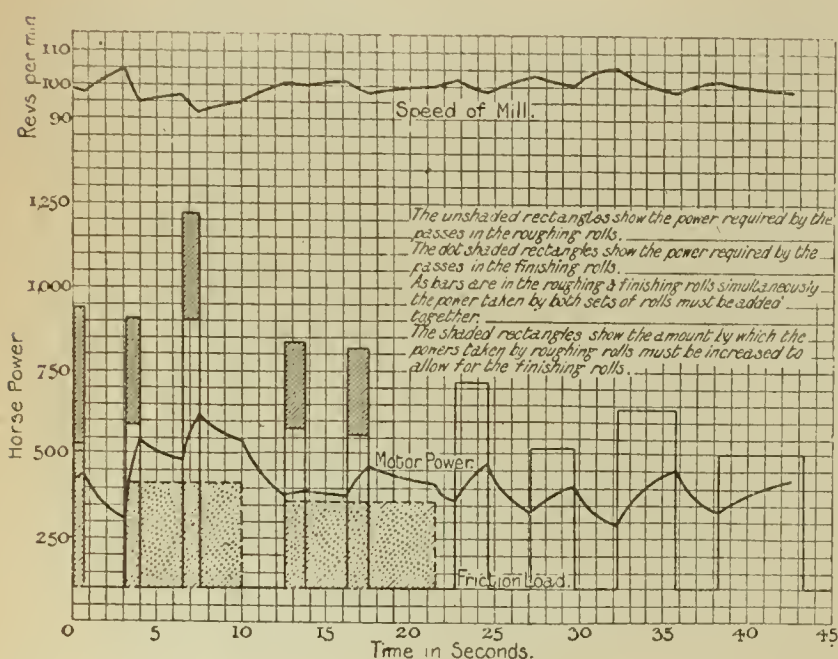 Revs per min
110
100
90
Speed of Mill.
1,250
1,000
750
500
250
Horse Power
The unshaded rectangles show the power required by the
passes in the roughing rolls.
The dot shaded rectangles show the power required by the
passes in the finishing rolls.
As bars are in the roughing & finishing rolls simultaneously
the power taken by both sets of rolls must be added
together.
The shaded rectangles show the amount by which the
powers taken by roughing rolls must be increased to
allow for the finishing rolls.
Motor Power.
Friction Load.
0 5 10 15 20 25 30 35 40 45
Time in Seconds.